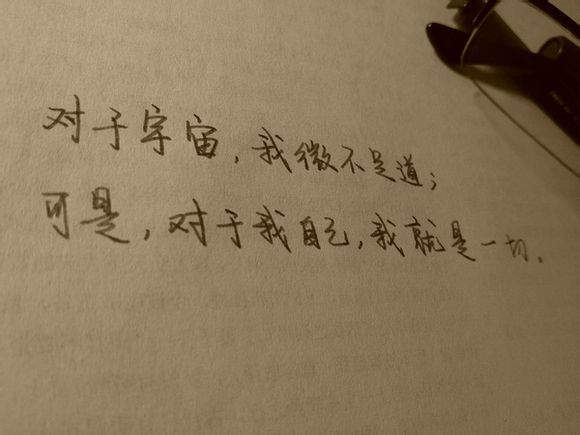 对于宇宙，我微不足道；
可是，对于我自己，我就是一切.